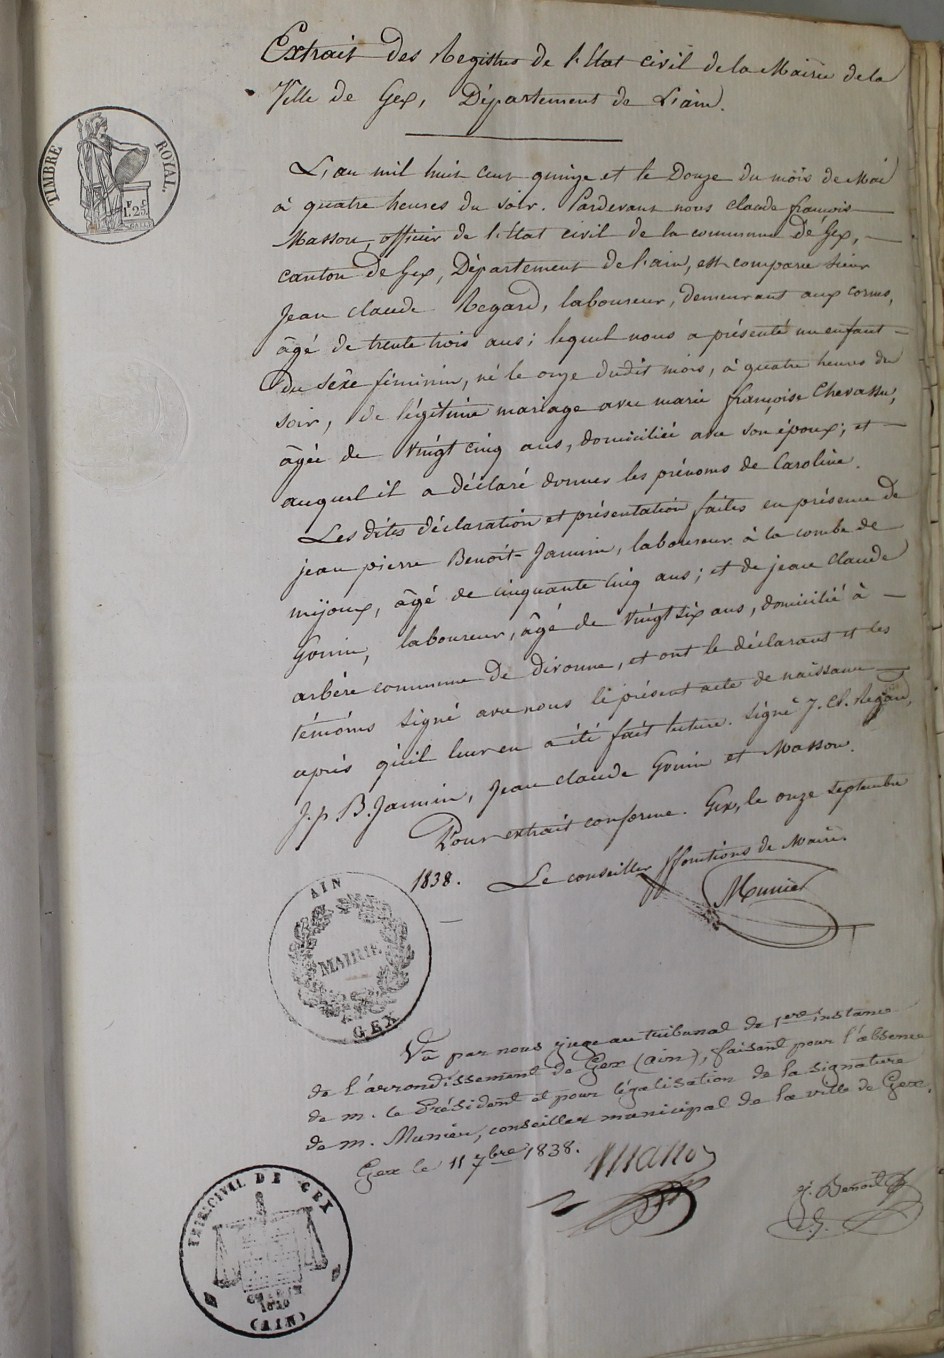 Extrait des Registres de l'Etat civil de la Mairie de la
Ville de Gex, Département de L'ain.
TIMBRE ROYAL.
1.25
L'an mil huit cent quinze et le Douze du mois de Mai
à quatre heures du soir. Pardevant nous claude françois
Masson, officier de l'Etat civil de la commune de Gex,
canton de Gex, Département de l'ain, est comparu sieur
Jean claude Regard, laboureur, demeurant aux cornes,
âgé de trente trois ans; lequel nous a présenté un enfant
du sèxe féminin, né le onze dudit mois, à quatre heures du
soir, de légitime mariage avec marie françoise Chevassu,
âgée de vingt cinq ans, domiciliée avec son époux; et
auquel il a déclaré donner les prénoms de Caroline.
Les dites déclaration et présentation faites en présence de
jean pierre Benoit-Jannin, laboureur à la combe de
mijoux, âgé de cinquante cinq ans; et de jean claude
Gonin, laboureur, âgé de vingt six ans, domicilié à
arbère commune de divonne, et ont le déclarant et les
témoins signé avec nous le présent acte de naissance
après qu'il leur en a été fait lecture. signé J. Cl. Regard,
J. p. B. Jannin, Jean claude Gonin et Masson.
Pour extrait conforme. Gex, le onze septembre
1838. Le conseiller ffonctions de Maire.
Munier
AIN
MAIRIE
GEX
Vu par nous juge au tribunal de 1ere instance
de l'arrondissement de Gex (ain), faisant pour l'absence
de m. le Président et pour légalisation de la signature
de m. Munier, conseiller municipal de la ville de Gex.
Gex le 11 7bre 1838.
g. Benoit
TRIB. CIVIL DE GEX
(AIN)